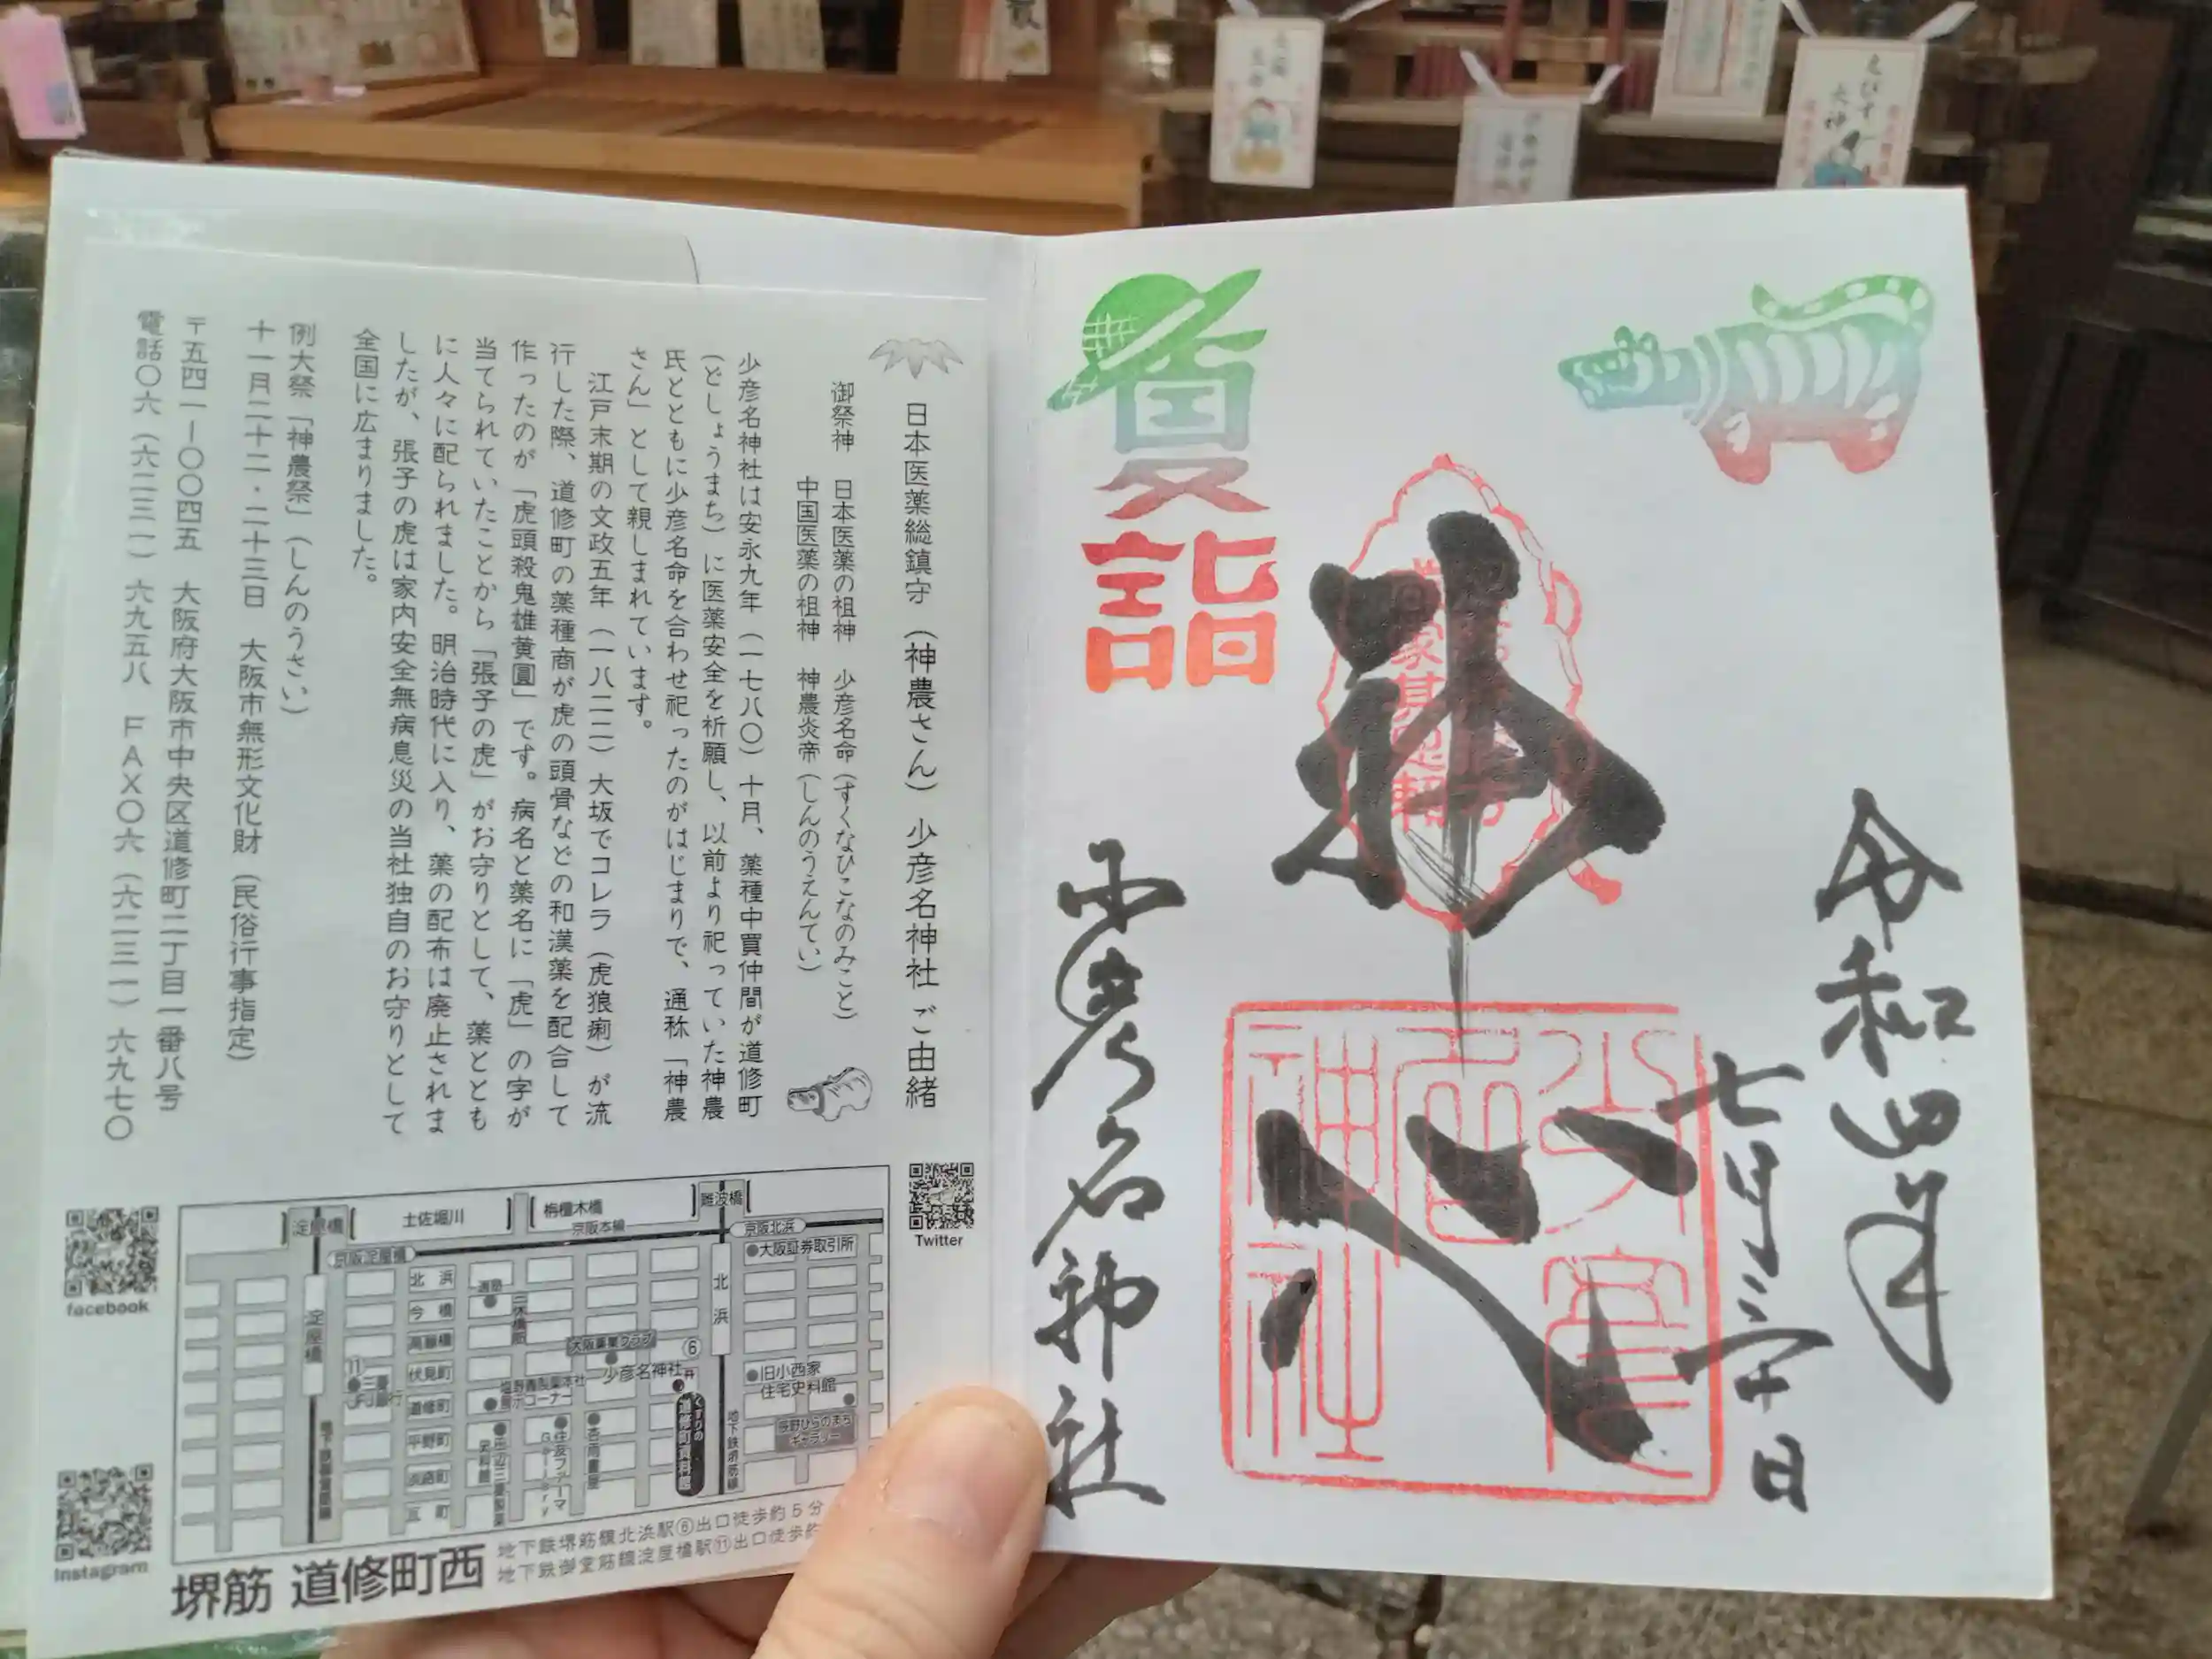 夏詣
令和四年
七月三十日
神
心
少彦名神社
少彦名神社
日本医薬総鎮守（神農さん）少彦名神社 ご由緒
御祭神 日本医薬の祖神 少彦名命（すくなひこなのみこと）
中国医薬の祖神 神農炎帝（しんのうえんてい）
少彦名神社は安永九年（一七八〇）十月、薬種中買仲間が道修町
（どしょうまち）に医薬安全を祈願し、以前より祀っていた神農
氏とともに少彦名命を合わせ祀ったのがはじまりで、通称「神農
さん」として親しまれています。
江戸末期の文政五年（一八二二）大坂でコレラ（虎狼痢）が流
行した際、道修町の薬種商が虎の頭骨などの和漢薬を配合して
作ったのが「虎頭殺鬼雄黄圓」です。病名と薬名に「虎」の字が
当てられていたことから「張子の虎」がお守りとして、薬ととも
に人々に配られました。明治時代に入り、薬の配布は廃止されま
したが、張子の虎は家内安全無病息災の当社独自のお守りとして
全国に広まりました。
例大祭「神農祭」（しんのうさい）
十一月二十二・二十三日 大阪市無形文化財（民俗行事指定）
〒五四一ー〇〇四五 大阪府大阪市中央区道修町二丁目一番八号
電話〇六（六二三一）六九五八 FAX〇六（六二三一）六九七〇
Twitter
facebook
Instagram
淀屋橋
土佐堀川
栴檀木橋
難波橋
京阪本線
京阪淀屋橋
京阪北浜
大阪証券取引所
北浜
今橋
高麗橋
伏見町
道修町
平野町
淡路町
瓦町
適塾
三休橋筋
大阪薬業クラブ
⑥
北浜
淀屋橋
11
少彦名神社
くすりの道修町資料館
旧小西家
住宅史料館
地下鉄堺筋線
堺筋 道修町西
地下鉄堺筋線北浜駅⑥出口徒歩約5分
地下鉄御堂筋線淀屋橋駅⑪出口徒歩約
えびす大神